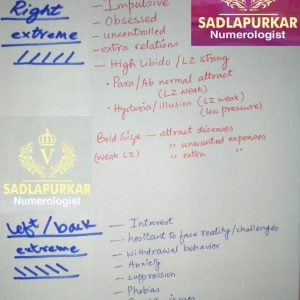 Right
extreme
/ / / / /
- Impulsive
- Obsessed
- uncontrolled
- extra relations
- High Libido / LZ strong
• Para/Ab normal attract
(LZ weak)
• Hysteria/illusion (LZ weak)
(low pressure)
SADLAPURKAR
Numerologist
Bold Size - attract diseases
(weak LZ) " unwanted expenses
" extra
V
SADLAPURKAR
Numerologist
Left/back
extreme
\ \ \ \ \
- Interest
- hesitant to face reality/challenges
- withdrawal behavior
- Anxiety
- suppression
- Phobias